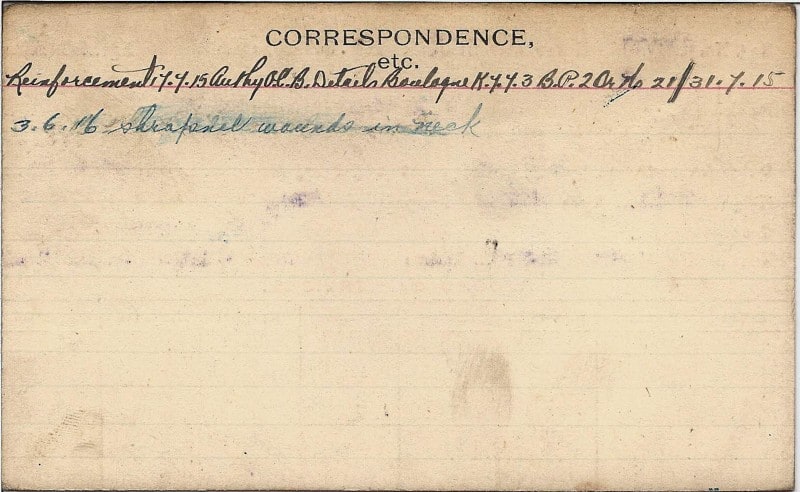 CORRESPONDENCE,
etc.
Reinforcement 17.7.15 Authy O.C. B. Details Boulogne K.7.7.3 B.P. 2 Or No 21/31.7.15
3.6.16 shrapnel wounds in neck